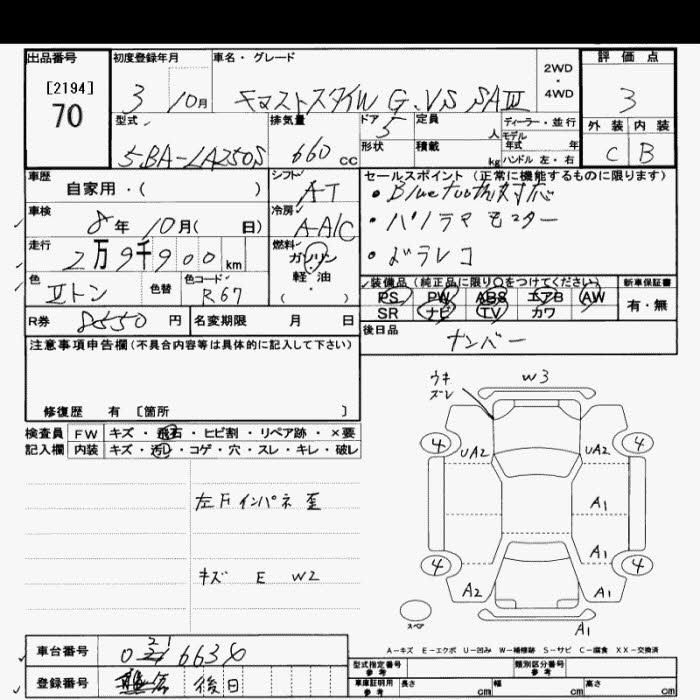 出品番号
[2194]
70
初度登録年月
3 / 10月
車名・グレード
G・VS SAⅢ
2WD
・
4WD
評価点
3
外装 内装
C B
型式
5BA-LA250S
排気量
660 cc
ドア
5
定員
人
形状
積載
kg
ディーラー・並行
モデル年式 年
ハンドル 左・右
車歴
自家用・( )
シフト
AT
セールスポイント (正常に機能するものに限ります)
・Bluetooth対応
・パノラマモニター
・ドラレコ
車検
8年 10月( 日)
冷房
AAC
走行
2万9千900 km
燃料
ガソリン
・
軽・油
( )
色
Ⅱトン
色替
色コード
R67
装備品 (純正品に限り○をつけてください)
PS PW ABS エアB AW
SR ナビ TV カワ
新車保証書
有・無
R券 8550 円
名変期限 月 日
後日品
ナンバー
注意事項申告欄(不具合内容等は具体的に記入して下さい)
修復歴 有 〔箇所 〕
検査員記入欄
FW キズ・飛石・ヒビ割・リペア跡・×要
内装 キズ・汚れ・コゲ・穴・スレ・キレ・破レ
左Fインパネ歪
キズ E W2
ウキ
ズレ
W3
4
UA2
UA2
4
A1
A1
4
A2
A1
4
A1
スペア
A-キズ E-エクボ U-凹み W-補修跡 S-サビ C-腐食 XX-交換済
車台番号
登録番号
後日
型式指定番号
参考
類別区分番号
参考
車庫証明用
参考
長さ cm
幅 cm
高さ cm